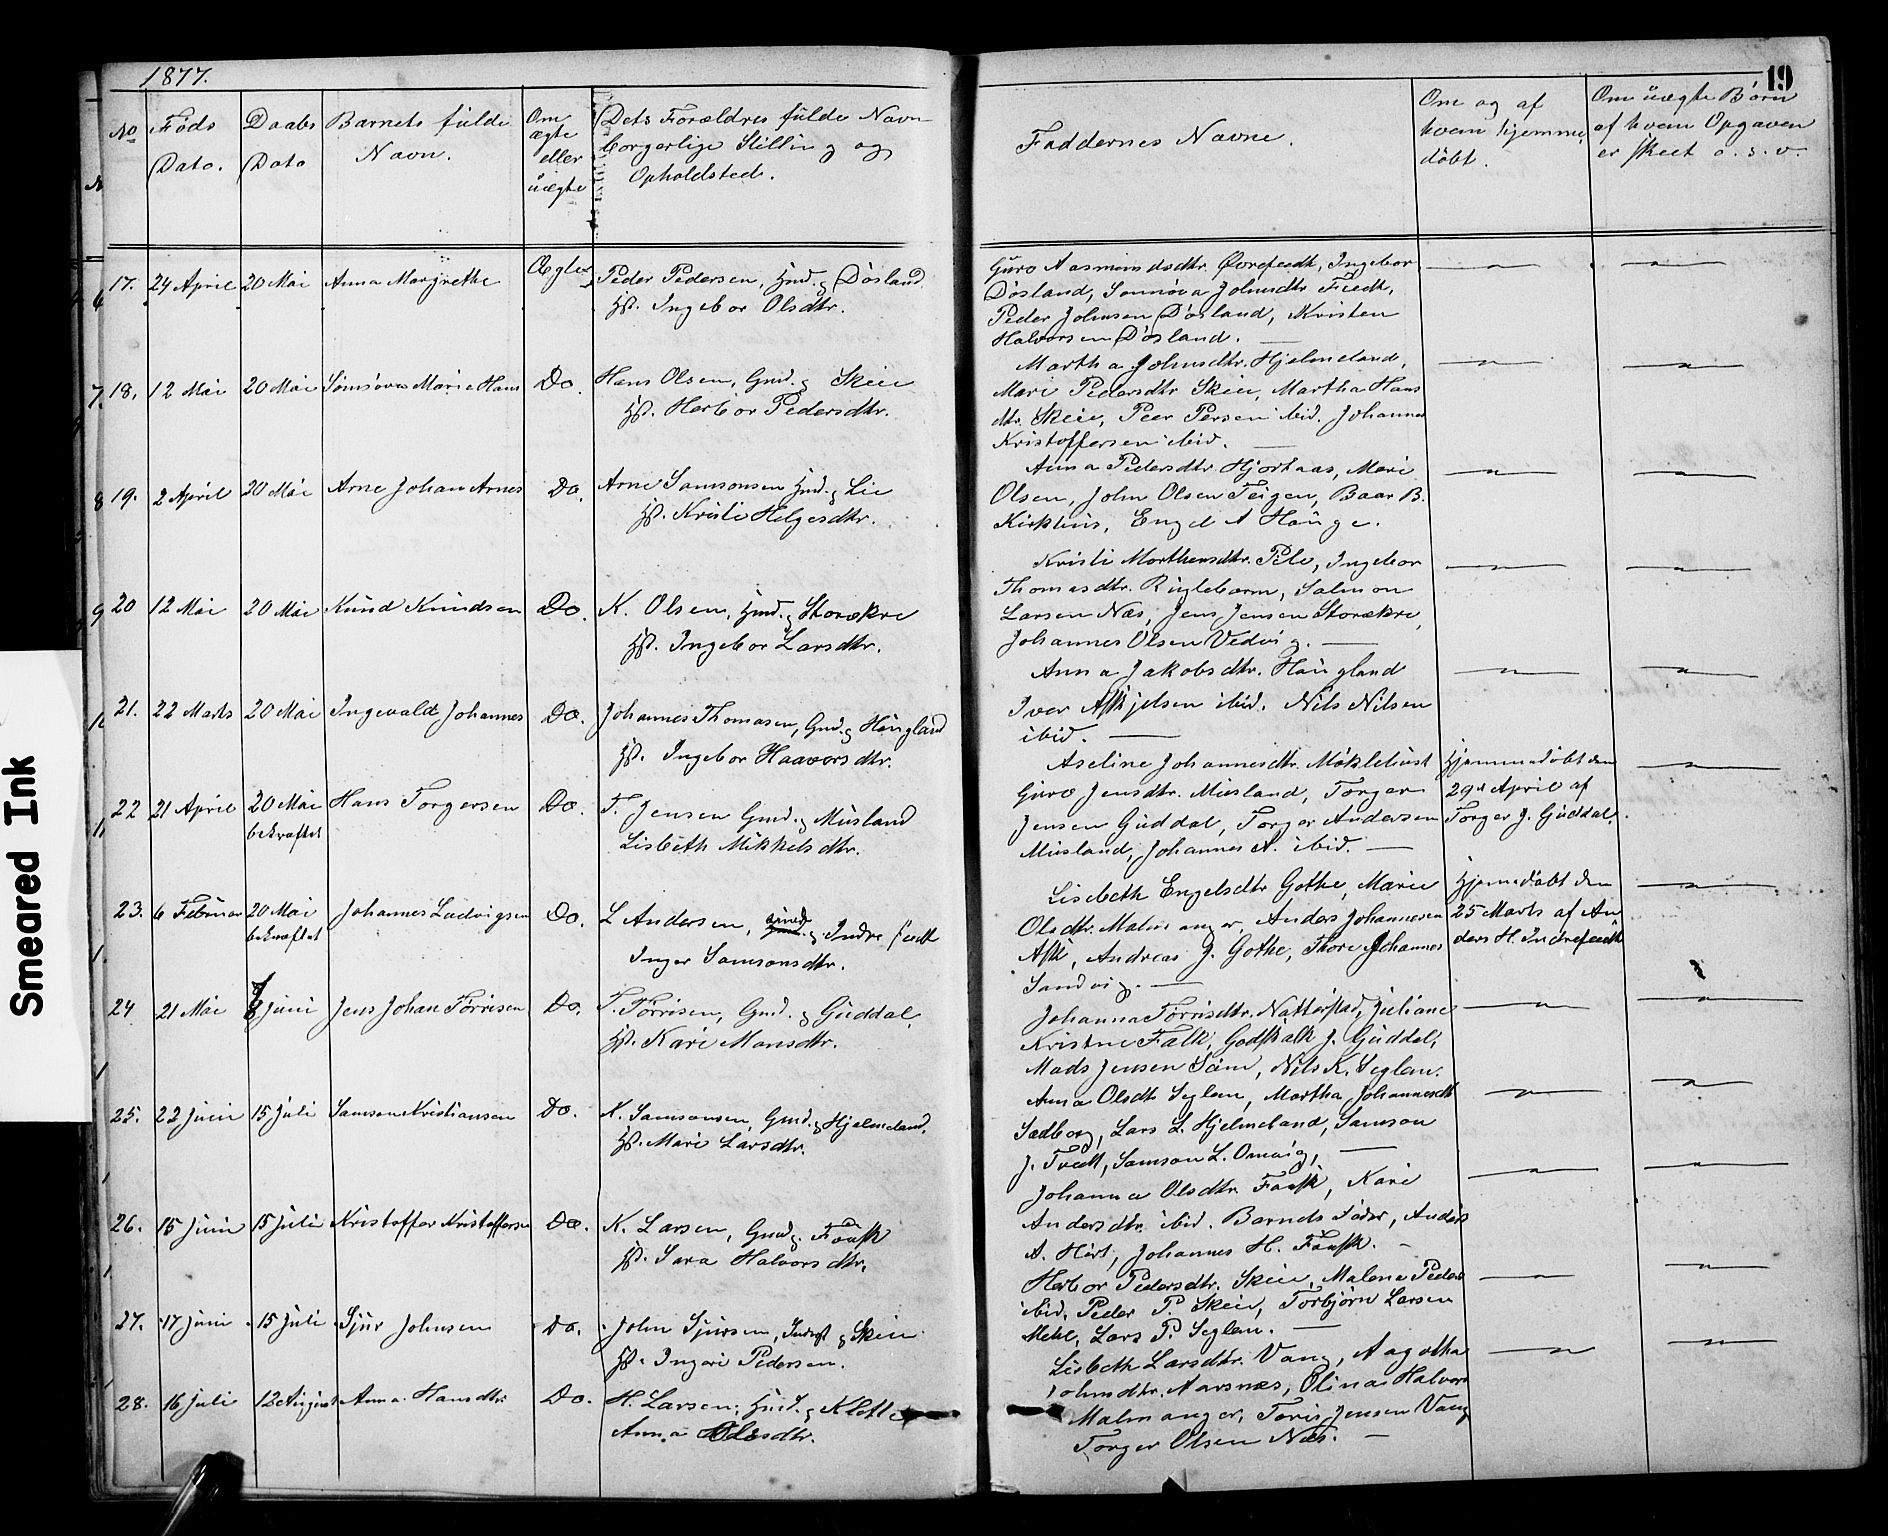 1877.
19
No
Føds Dato.
Daabs Dato
Barnets fulde Navn.
Om ægte eller uægte
Dets Forældres fulde Navn borgerlige Stilling og Opholdsted.
Faddernes Navne.
Om og af hvem hjemmedøbt.
Om uægte Børn af hvem Opgaven er skeet o.s.v.
17. 24 April 20 Mai Anna Margrethe Ægte Peder Pedersen, Gmd. g Døsland
Hst. Ingebor Olsdtr.
Guro Aasmundsdtr. Øvrefeedt, Ingebor
Døsland, Sonnøva Johnsdtr Tvedt,
Peder Johnsen Døsland, Kristen
Halvorsen Døsland.
18. 12 Mai 20 Mai Sønnøva Marie Hans Do. Hans Olsen, Gmd. g Skeie
Hst. Herbor Pedersdtr.
Martha Johnsdtr. Hjelmeland,
Mari Pedersdtr Skeie, Martha Hans
dtr. Skeie, Peer Persen ibid. Johannes
Kristoffersen ibid.
19. 2 April 20 Mai Arne Johan Arnes Do. Arne Samsonsen Gmd. g Lie
Hst. Kristi Helgesdtr.
Anna Pedersdtr. Hjortaas, Mari
Olsen, John Olsen Teigen, Baar B.
Kirkhus, Engel A Hauge.
20 12 Mai 20 Mai Knud Knudsen Do. K. Olsen, Gmd. g Storækre
Hst. Ingebor Larsdtr.
Kristi Marthensdtr. Pile, Ingebor
Thomasdtr. Ringleborn, Salmon
Larsen Næs, Jens Jensen Storækre,
Johannes Olsen Vedvig.
21. 22 Marts 20 Mai Ingevald Johannes Do. Johannes Thomasen, Gmd. g Haugland
Hst. Ingebor Haavorsdtr.
Anna Jakobsdtr. Haugland
Iver Askjelsen ibid. Nils Nilsen
ibid.
22 21 April 20 Mai bekræftet Hans Torgersen Do. T. Jensen Gmd. g Musland
Lisbeth Mikkelsdtr.
Aseline Johannesdtr. Møklebust
Guro Jensdtr. Musland, Torger
Jensen Guddal, Torger Andersen
Musland, Johannes A. ibid.
Hjemmedøbt den
29d April af
Torger J. Guddal.
23. 6 Februar 20 Mai bekræftet Johannes Ludvigsen Do. L Andersen, g. Indre feedt
Inger Samsonsdtr.
Lisebeth Engelsdtr Gothe, Marie
Olsdtr. Malmanger, Anders Johannesen
Ask, Andreas J. Gothe, Thore Johannes
Sandvig.
Hjemdøbt den
25 Marts af An
ders H. Indrefeedt
24 21 Mai 8 Juni Jens Johan Tørrisen Do. T. Tørrisen, Gmd. g Guddal,
Hst. Kari Monsdtr.
Johanna Tørrisdtr. Natterstad, Juliane
Kristine Falk, Godskalk J. Guddal,
Mads Jensen Sam, Nils K. Seglem.
25. 22 Juni 15 Juli Samson Kristiansen Do. K. Samsonsen, Gmd. g Hjelmeland.
Hst. Mari Larsdtr.
Anna Olsdtr Seglem, Martha Johannesdt
Sædberg, Lars L. Hjelmeland, Samson
J. Tvedt, Samson L. Omvig,
26. 15 Juni 15 Juli Kristoffer Kristoffersen Do. K. Larsen, Gmd g. Faask
Hst. Sara Halvorsdtr,
Johanna Olsdtr Faask, Kari
Andersdtr. ibid. Barnets Fader, Anders
A. Hært, Johannes H. Faask.
27. 17 Juni 15 Juli Sjur Johnsen Do. John Sjursen, Inderst g Skeie
Hst. Ingeri Pedersen.
Herbor Pedersdtr. Skeie, Malena Peders
ibid. Peder P. Skeie, Torbjørn Larsen
Mehl, Lars P. Seglem.
28. 16 Juli 12 August Anna Hansdtr. Do. H. Larsen, Husd. g Klette
Anna Olesdtr.
Lisbeth Larsdtr. Vang, Aagotha
Johnsdtr. Aarsnæs, Olina Halvors
Malmanger, Toris Jensen Vang
Torger Olsen Næs.
Smeared Ink